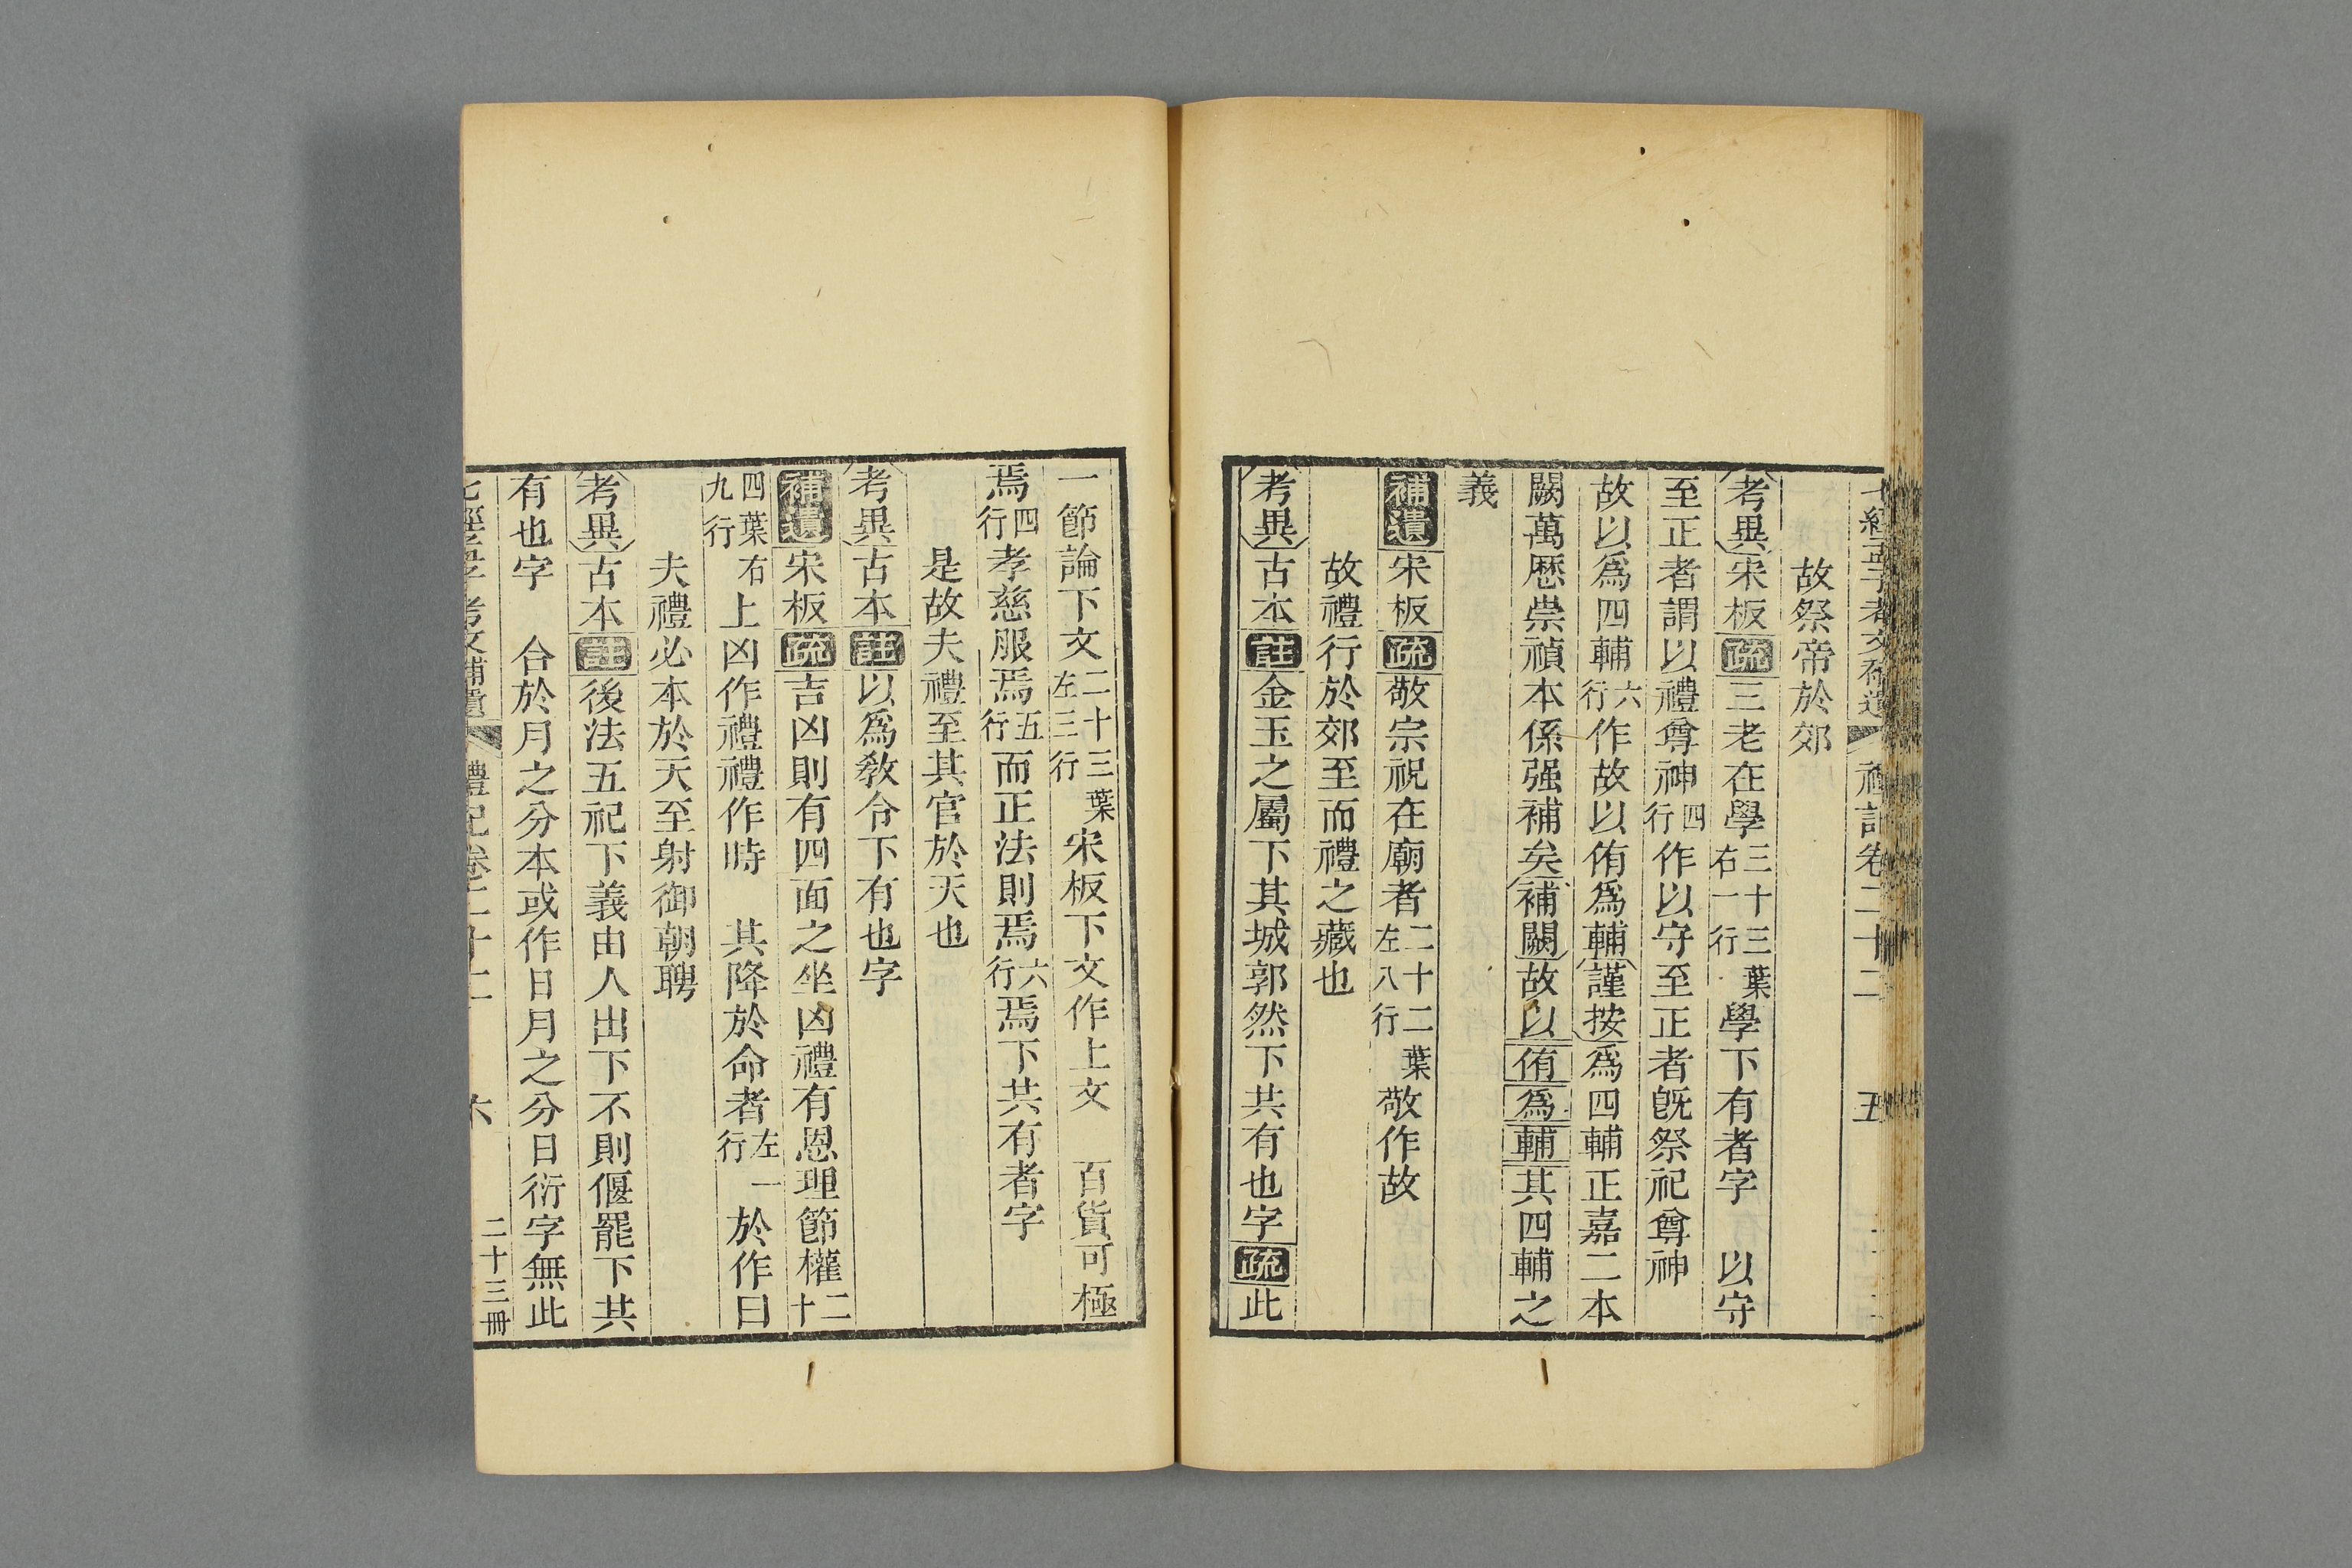 七經孟子考文補遺 禮記卷二十二 五
故祭帝於郊
考異宋板疏三老在學三十三葉右一行學下有者字 以守
至正者謂以禮尊神四行作以守至正者旣祭祀尊神
故以爲四輔六行作故以侑爲輔謹按爲四輔正嘉二本
闕萬曆崇禎本係强補矣補闕故以侑爲輔其四輔之
義
補遺宋板疏敬宗祝在廟者二十二葉左八行敬作故
故禮行於郊至而禮之藏也
考異古本註金玉之屬下其城郭然下共有也字疏此
一節論下文二十三葉左三行宋板下文作上文 百貨可極
焉四行孝慈服焉五行而正法則焉六行焉下共有者字
是故夫禮至其官於天也
考異古本註以爲敎令下有也字
補遺宋板疏吉凶則有四面之坐凶禮有恩理節權二十
四葉右九行上凶作禮禮作時 其降於命者左一行於作曰
夫禮必本於天至射御朝聘
考異古本註後法五祀下義由人出下不則偃罷下共
有也字 合於月之分本或作日月之分日衍字無此
七經孟子考文補遺 禮記卷二十二 六 二十三冊